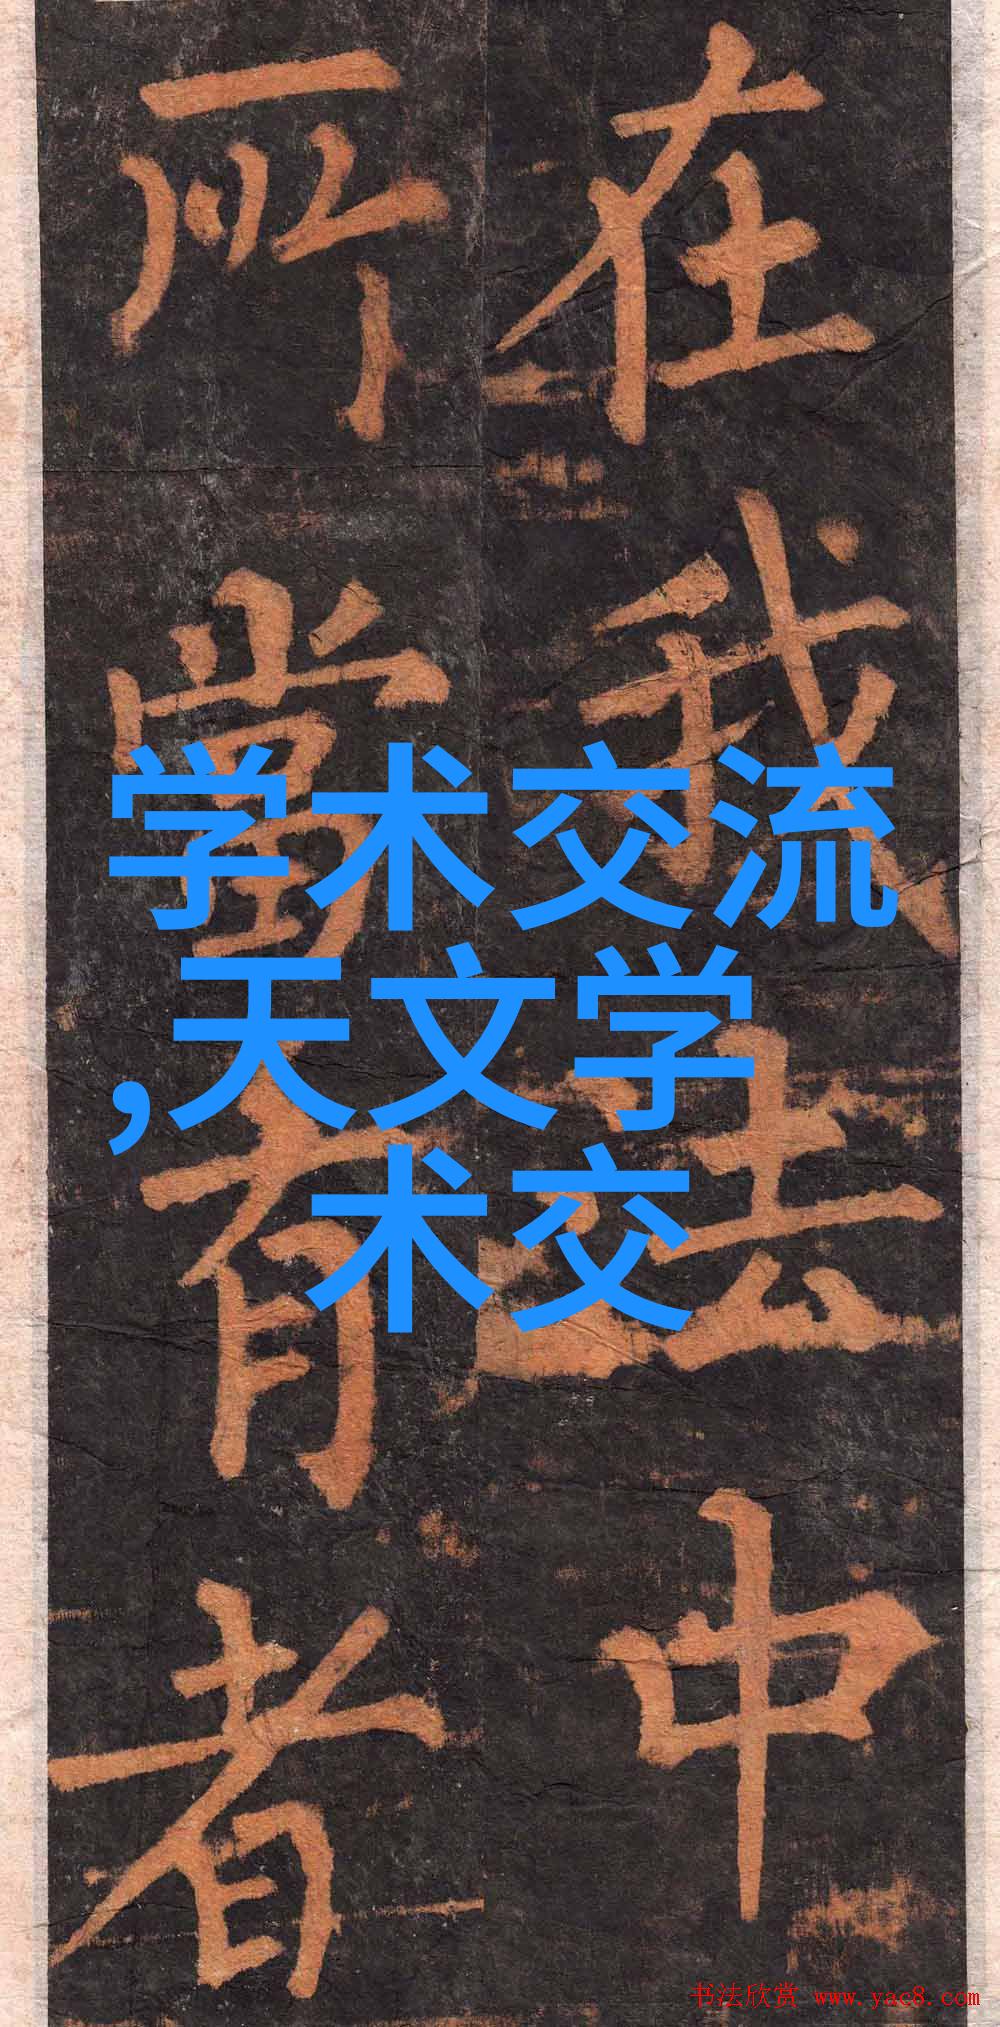 在我法中
所當有者
学术交流
,天文学
术交
书法欣赏 www.yac8.com